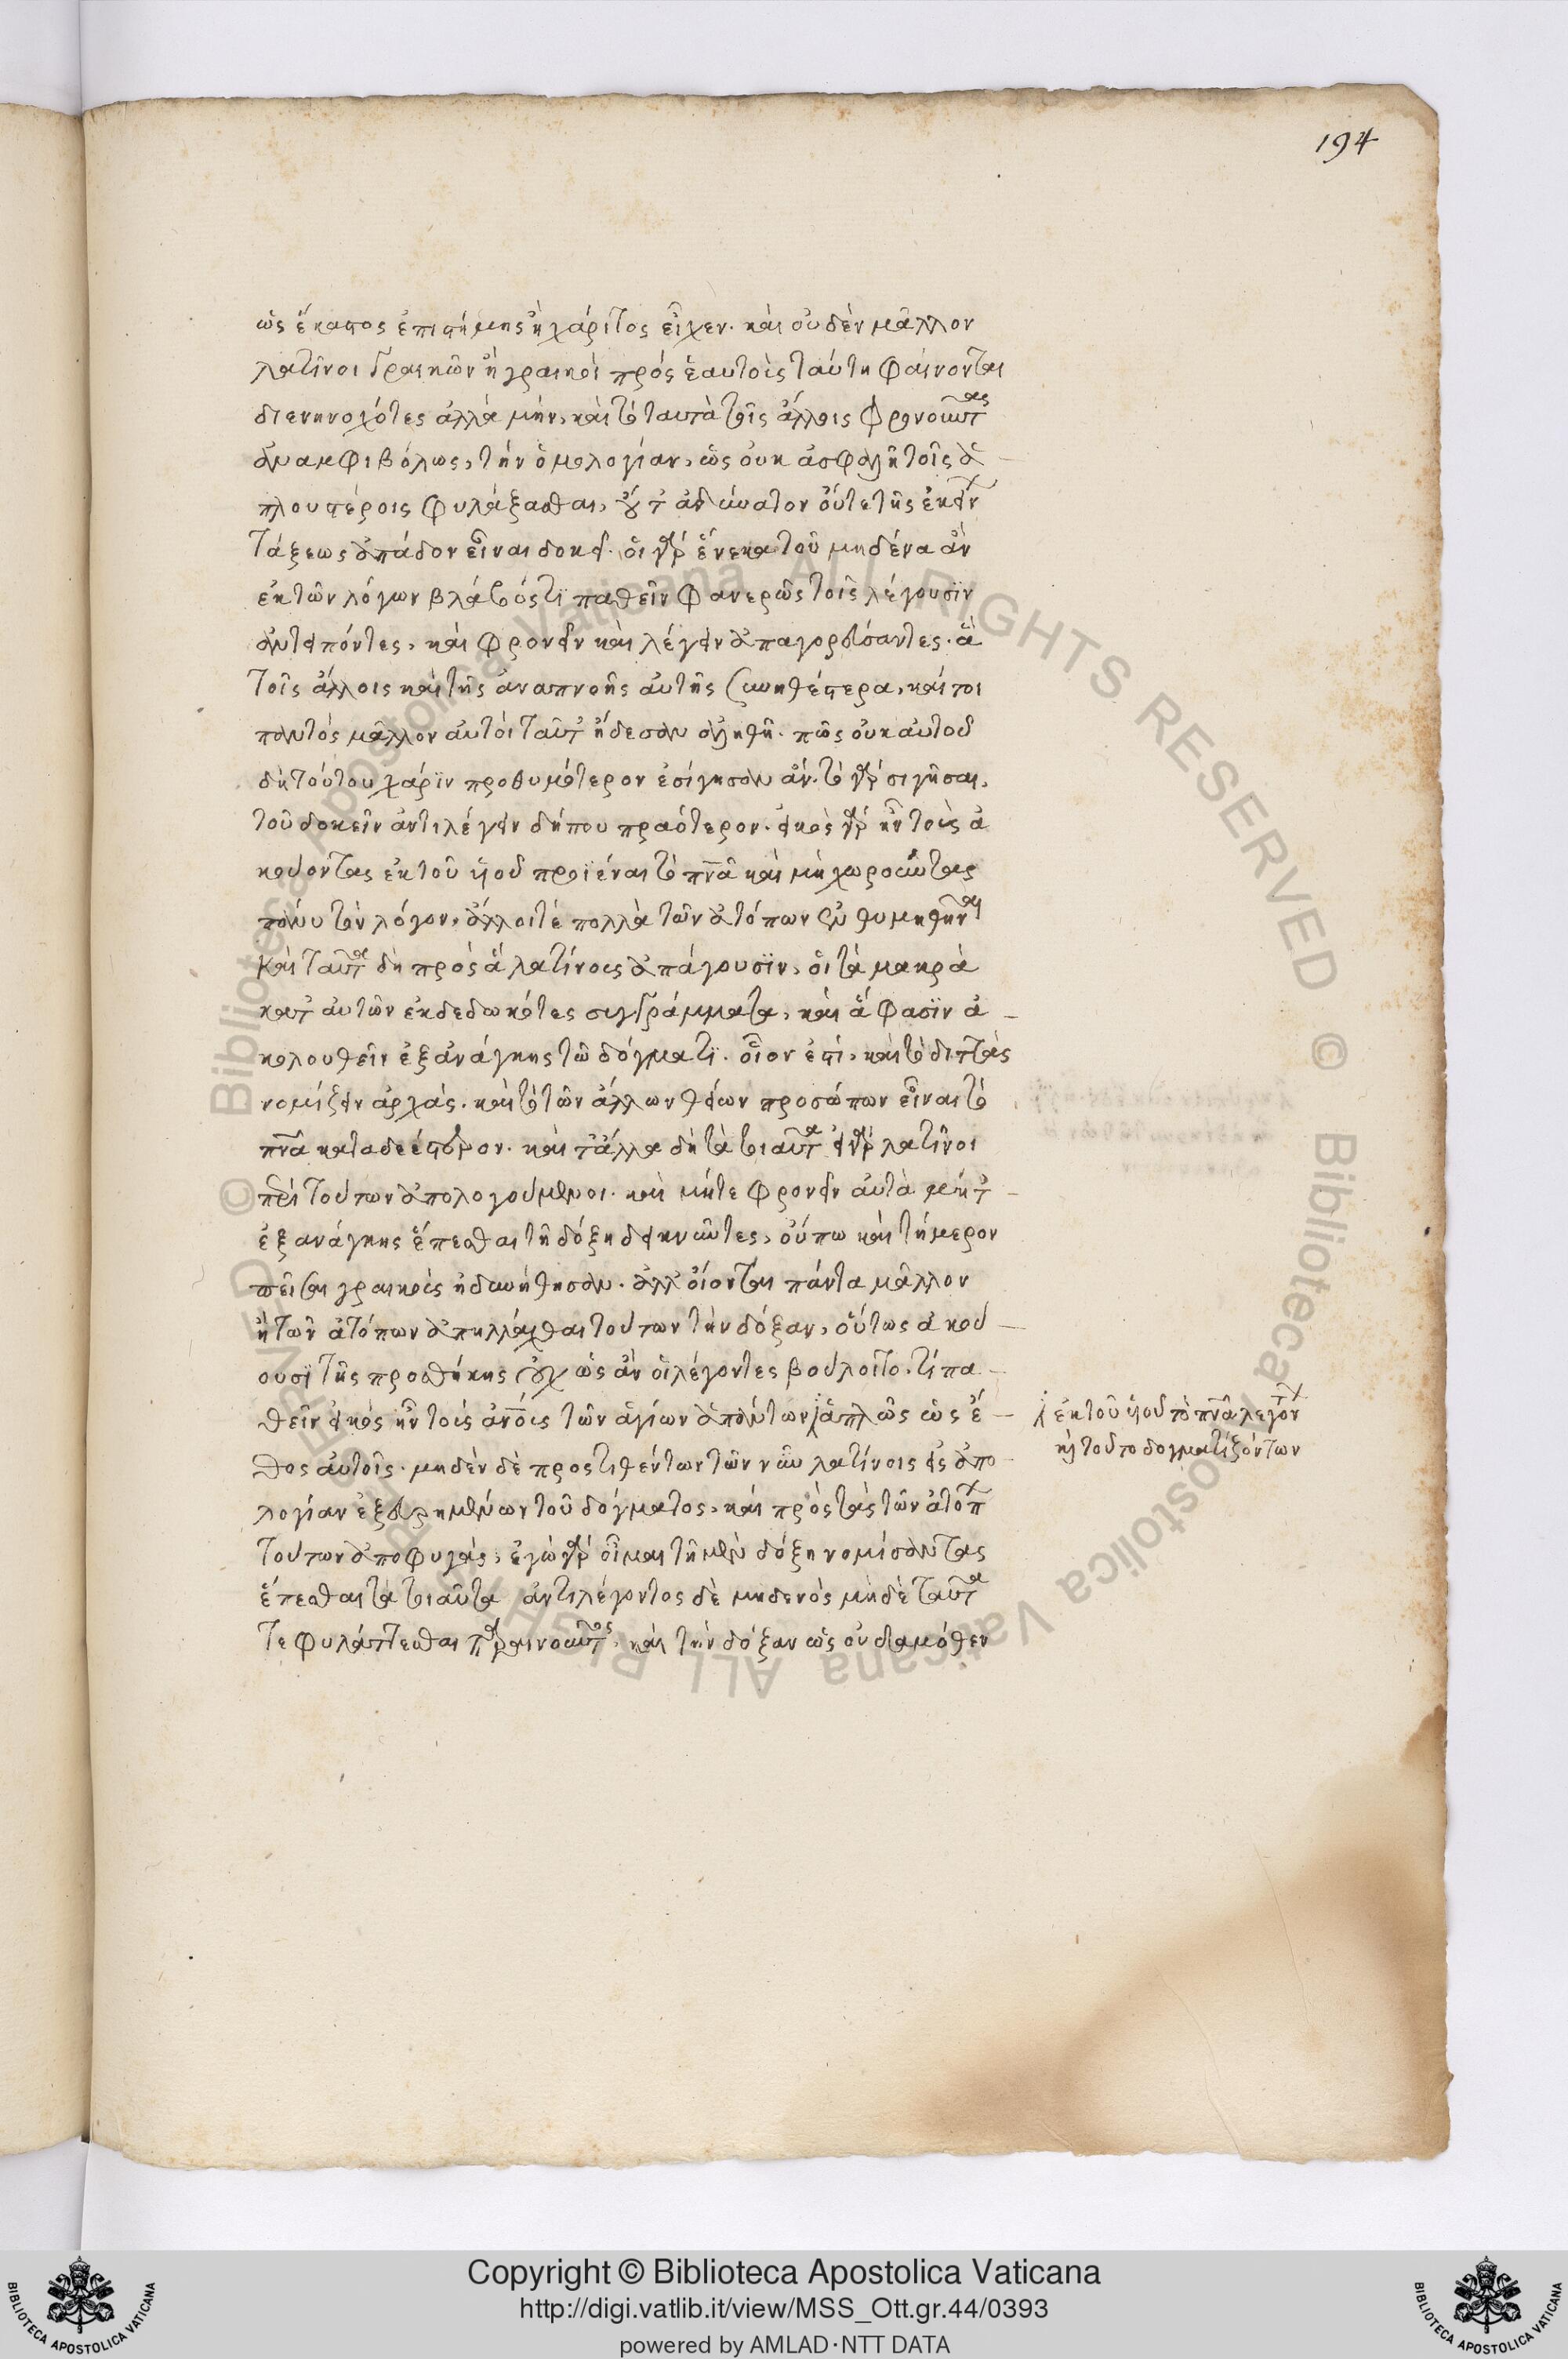 194
ὡς ἕκαστος ἐπιστήμης ἢ χάριτος εἶχεν. καὶ οὐδὲν μᾶλλον
λατῖνοι γραικῶν ἢ γραικοὶ πρὸς ἑαυτοὺς ταύτη φαίνονται
διενηνοχότες ἀλλὰ μὴν, καὶ τὸ ταυτὰ τοῖς ἄλλοις φρονοῦντας
ἀναμφιβόλως, τὴν ὁμολογίαν, ὡς οὐκ ἀσφαλῆ τοῖς ἁ
πλουστέροις φυλάξασθαι, οὔτ' ἀδύνατον οὔτε τῆς ἐκείνων
τάξεως ἀπᾶδον εἶναι δοκεῖ. οἱ γὰρ ἕνεκα τοῦ μηδένα ἂν
ἐκ τῶν λόγων βλάβος τι παθεῖν φανερῶς τοῖς λέγουσιν
ἀντειπόντες, καὶ φρονεῖν καὶ λέγειν ἀπαγορεύσαντες. ἃ
τοῖς ἄλλοις καὶ τῆς ἀναπνοῆς αὐτῆς συνηθέστερα, καίτοι
παντὸς μᾶλλον αὐτοὶ ταῦτ' ᾔδεσαν ἀληθῆ. πῶς οὐκ αὐτοῦ
δὴ τούτου χάριν προθυμότερον ἐσίγησαν ἄν. τὸ γὰρ σιγῆσαι,
τοῦ δοκεῖν ἀντιλέγειν δήπου πραότερον. εἰκὸς γὰρ ἦν τοὺς ἀ
κούοντας ἐκ τοῦ υἱοῦ προϊέναι τὸ πνα καὶ μὴ χωροῦντας
πάνυ τὸν λόγον, ἄλλοι τὲ πολλὰ τῶν ἀτόπων ἐνθυμηθῆναι
καὶ ταῦτα δὴ πρὸς ἃ λατίνους ἀπάγουσιν, οἱ τὰ μακρὰ
κατ' αὐτῶν ἐκδεδωκότες συγγράμματα, καὶ ἅ φασιν ἀ
κολουθεῖν ἐξανάγκης τῶ δόγματι. οἷον ἐστὶ, καὶ τὸ διττὰς
νομίζειν ἀρχάς. καὶ τὸ τῶν ἄλλων θείων προσώπων εἶναι τὸ
πνα καταδεέστερον. καὶ τἆλλα δὴ τὰ τοιαῦτα εἰ γὰρ λατῖνοι
περὶ τούτων ἀπολογούμενοι. καὶ μήτε φρονεῖν αὐτὰ μήτ'
ἐξανάγκης ἕπεσθαι τῆ δόξη δεικνῦντες, οὔπω καὶ τήμερον
πεῖσαι γραικοὺς ἠδυνήθησαν. ἀλλ' οἴονται πάντα μᾶλλον
ἢ τῶν ἀτόπων ἀπηλλάχθαι τούτων τὴν δόξαν, οὕτως ἀκού
ουσι τῆς προσθήκης οὐχ ὡς ἂν οἱ λέγοντες βούλοιτο. τί πα
θεῖν εἰκὸς ἦν τοὺς ἀνους τῶν ἁγίων ἁπάντων ἁπλῶς ὡς ἔ
θος αὐτοῖς. μηδὲν δὲ προστιθέντων τῶν νῦν λατίνοις εἰς ἀπο
λογίαν ἐξευρημένων τοῦ δόγματος, καὶ πρὸς τὰς τῶν ἀτόπων
τούτων ἀποφυγάς, ἐγὼ γὰρ οἶμαι τῆ μὲν δόξη νομίσαντας
ἕπεσθαι τὰ τοιαῦτα ἀντιλέγοντος δὲ μηδενὸς μὴδὲ ταῦτα
τε φυλάττεσθαι παραινοῦντος, καὶ τὴν δόξαν ὡς οὐδαμόθεν
ἐκ τοῦ υἱοῦ τὸ πνα λεγόντων
καὶ τοῦτο δογματιζόντων
Copyright © Biblioteca Apostolica Vaticana
http://digi.vatlib.it/view/MSS_Ott.gr.44/0393
powered by AMLAD·NTT DATA
BIBLIOTECA APOSTOLICA VATICANA
BIBLIOTECA APOSTOLICA VATICANA
© Biblioteca Apostolica Vaticana ALL RIGHTS RESERVED © Biblioteca Apostolica Vaticana ALL RIGHTS RESERVED